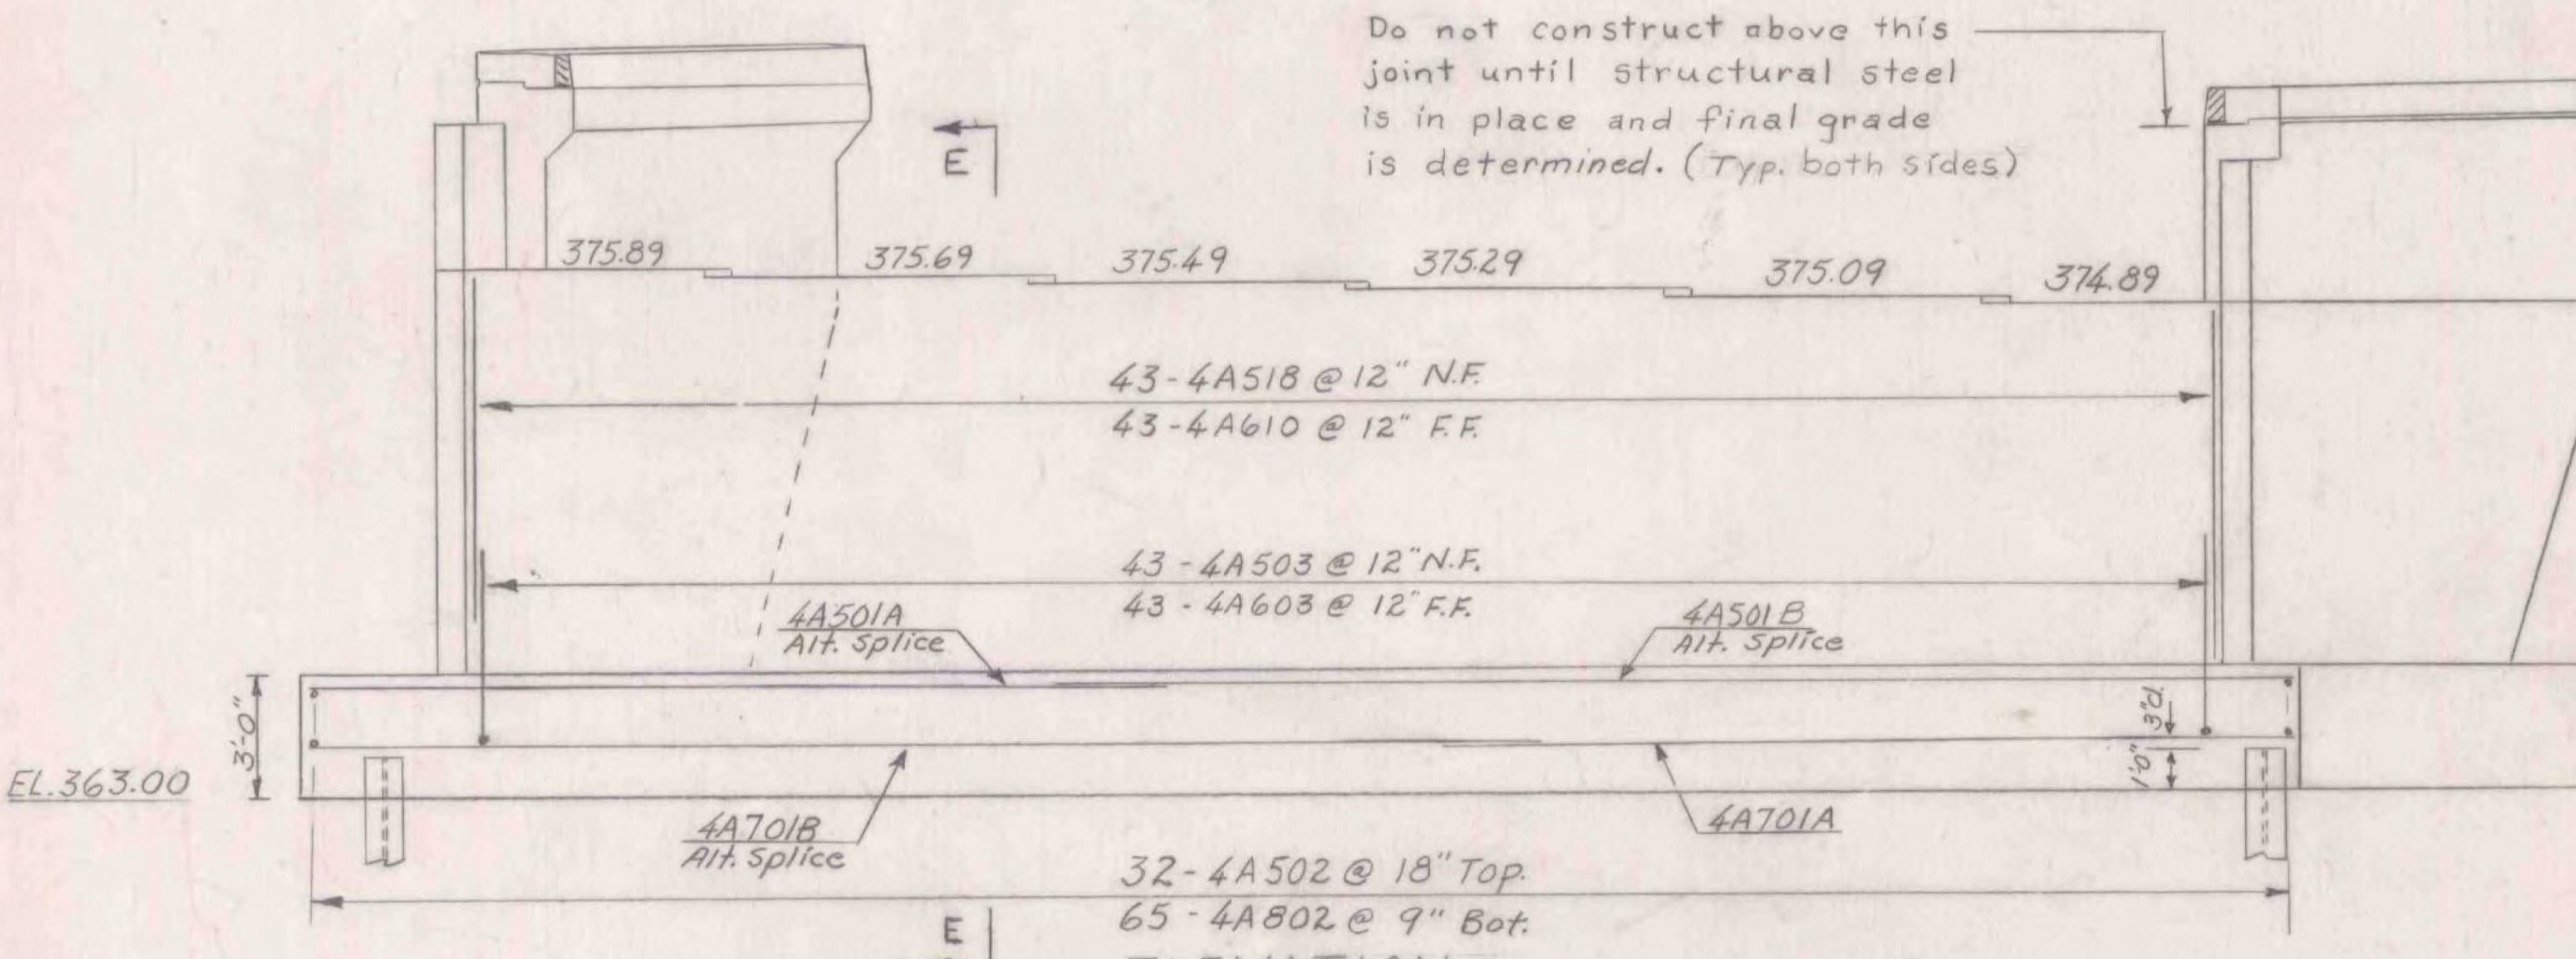 Do not construct above this
joint until structural steel
is in place and final grade
is determined. (Typ. both sides)
E
375.89
375.69
375.49
375.29
375.09
374.89
43-4A518 @ 12" N.F.
43-4A610 @ 12" F.F.
43-4A503 @ 12" N.F.
43-4A603 @ 12" F.F.
4A501A
Alt. Splice
4A501B
Alt. Splice
3'-0"
3"cl.
1'-0"
EL.363.00
4A701B
Alt. Splice
4A701A
32-4A502 @ 18" Top.
65-4A802 @ 9" Bot.
E